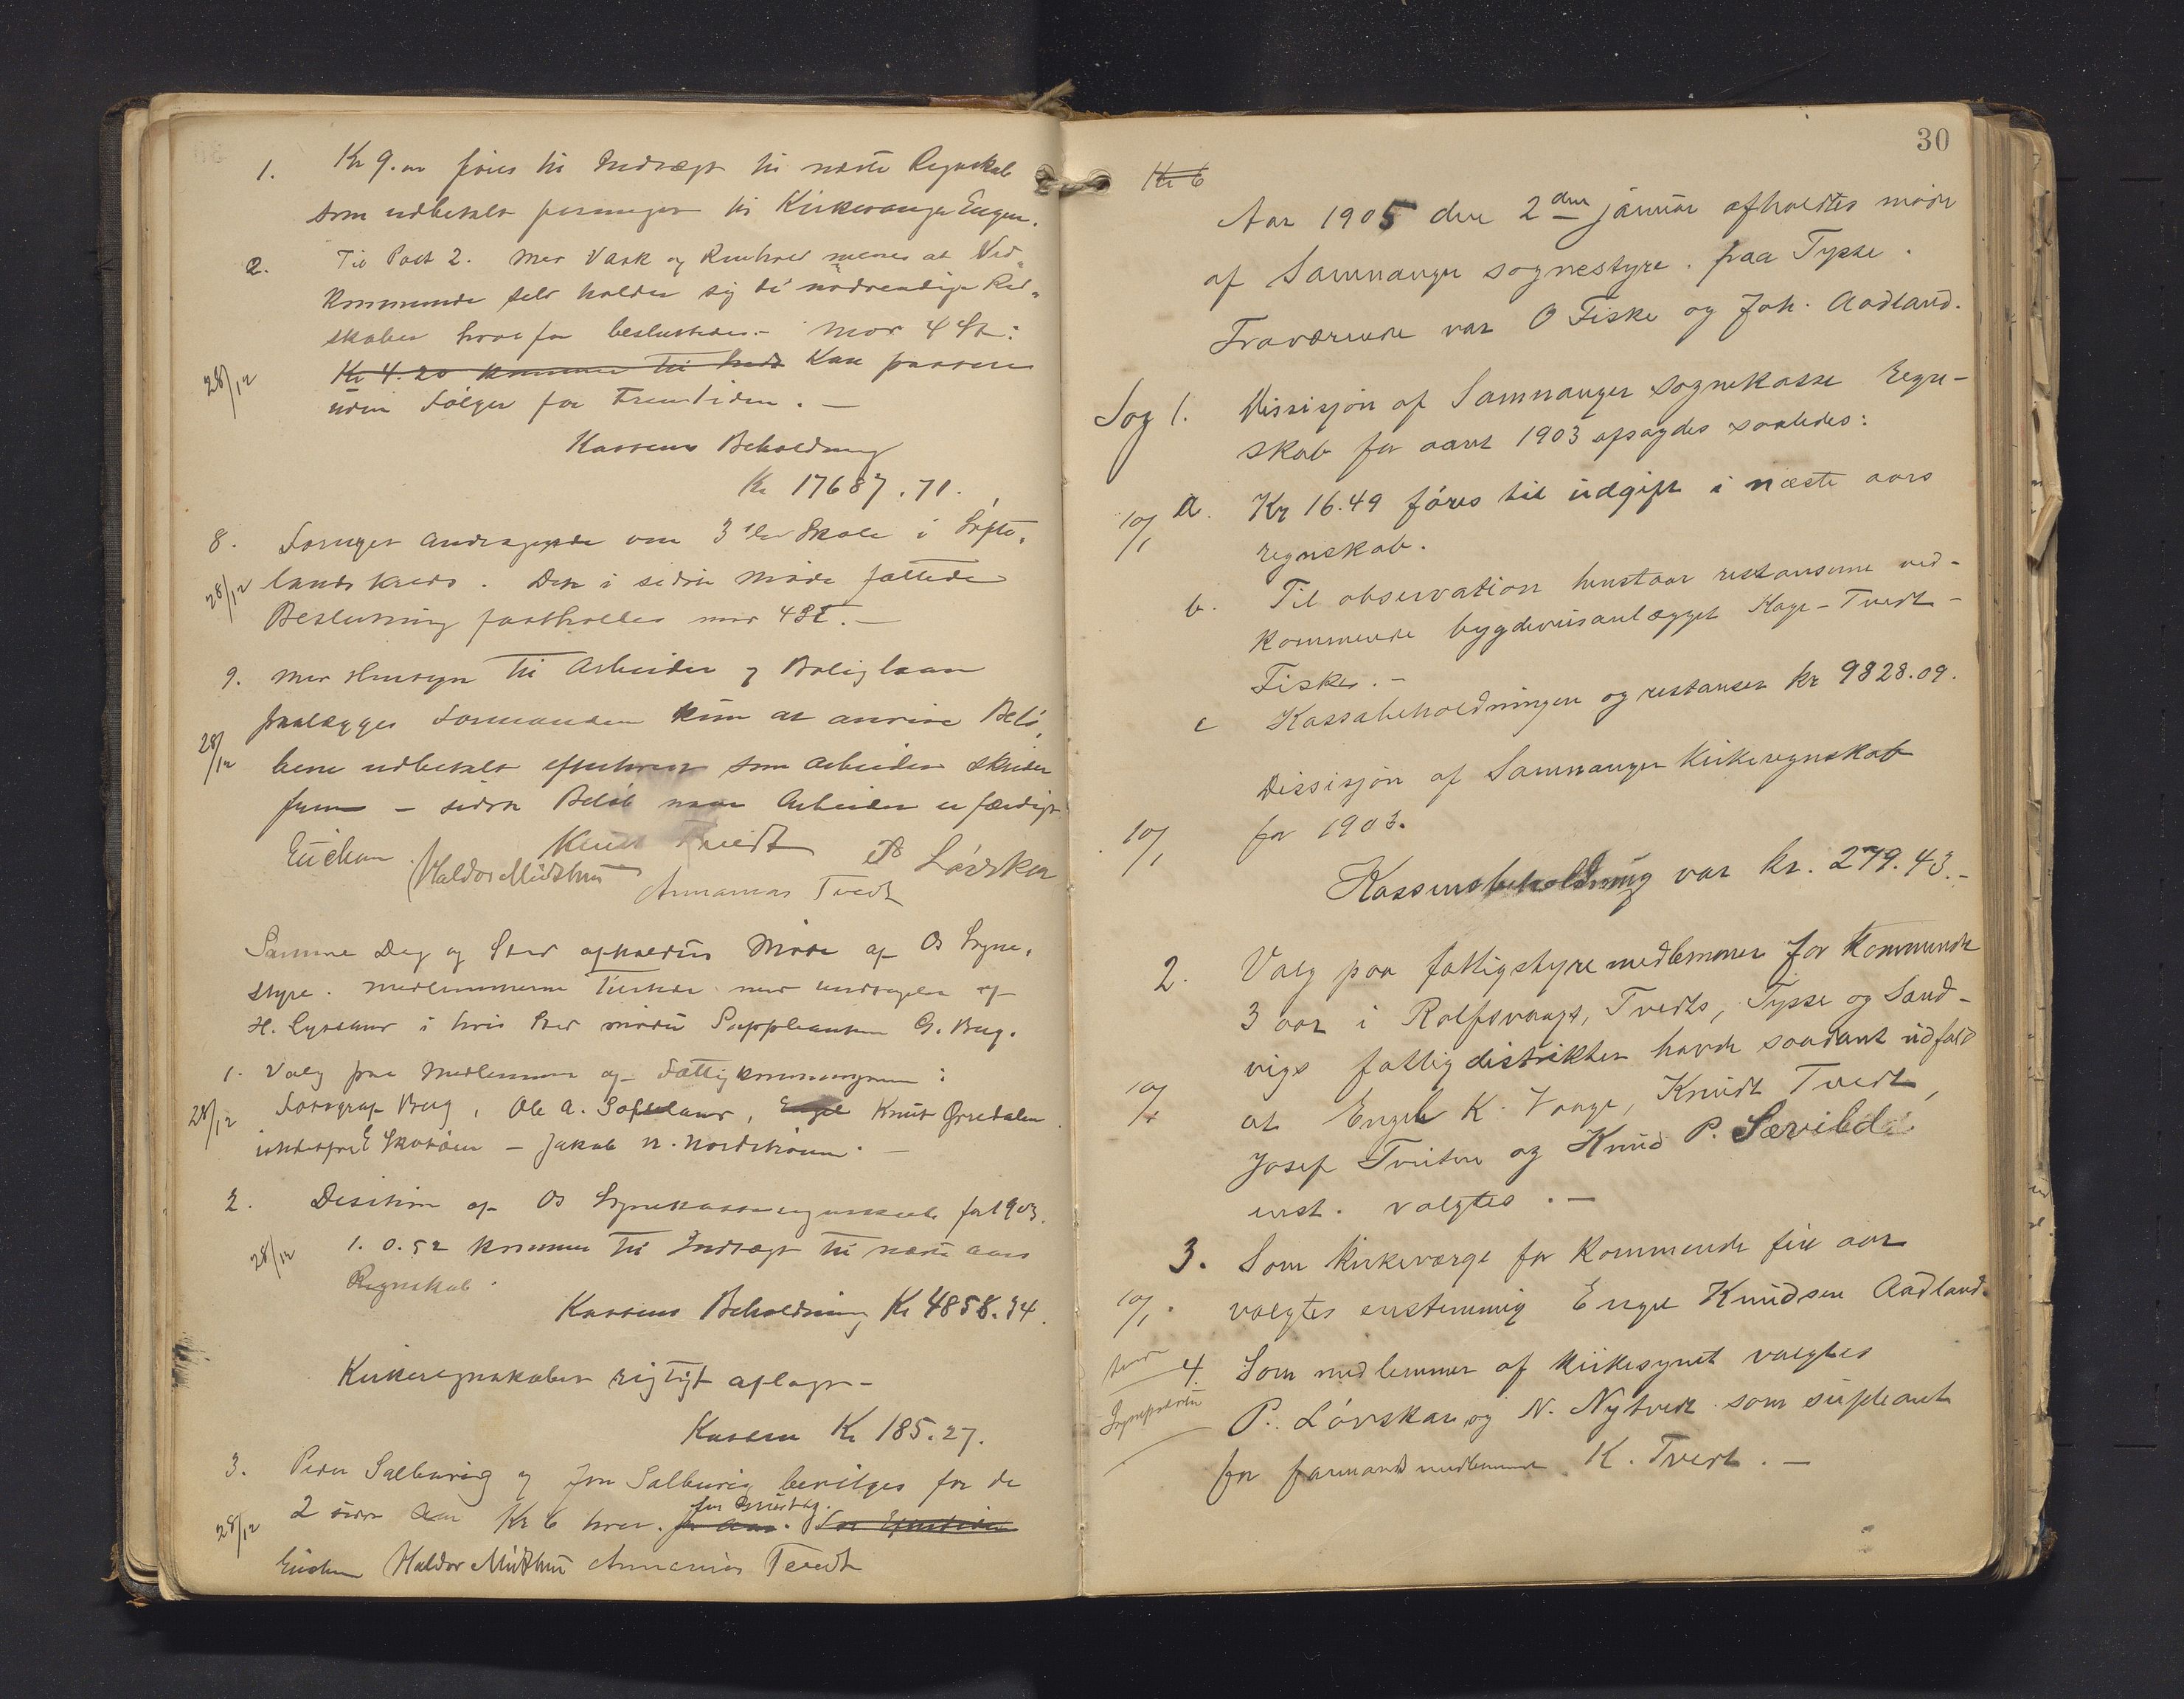 1. Kr 9.00 föres til Indtægt til næste Regnskab
som udbetalt til Kirkesanger Engen.
2. Til Post 2. Med Vask og Renhold menes at Ved-
kommende selv holder sig de nødvendige Red-
skaber hvorfor besluttedes mod 4 St:
28/12 Kr 4.20 kommer til Indt Kan passere
uden Følger for Fremtiden. —
Kassens Beholdning
Kr 17687.71.
8. Fornyet Andragende om 3die Skole i Søfte-
28/12 lands kreds. Den i sidste Møde fattede
Beslutning fastholdes mod 4 St. —
9. Med Hensyn til Arbeider og Boliglaan
paalægges Formanden kun at anvise Belø-
28/12 bene udbetalt efterhvert som Arbeidet skrider
frem — sidste Beløb naar Arbeidet er færdigt
Euchon Haldor Midthun Knut Tvedt Ananias Tvedt P Lövskar
Samme Dag og Sted afholdtes Møde af Os Sogne-
styre. Medlemmerne tilstede med Undtagelse af
H. Lyssand i hvis Sted mødte Suppleanten G. Berg.
1. Valg paa Medlemmer af Fattigkommisjonen:
28/12 Fotograf Berg, Ole A. Søfteland, Engel Knut Øvredalen
istedetfor E Skorøen — Jakob N. Nordstrøm. —
2. Desision af Os Sognekasseregnskab for 1903.
28/12 1. 0.52 kommer til Indtægt til næste Aars
Regnskab.
Kassens Beholdning Kr 4858.34.
Kirkeregnskabet rigtigt aflagt —
Kassen Kr 185.27.
3. Peder Salbuvig og Jon Salbuvig bevilges for de
2 sidste Aar Kr 6 hver. for Brudtag.
28/12 Euchon Haldor Midthun Ananias Tvedt
30
Kr 6
Aar 1905 den 2den januar afholdtes möde
af Samnanger sognestyre paa Tysse.
Fraværende var O Tiske og Joh. Aadland.
Sag 1. Dissisjon af Samnanger sognekasse regn-
skab for aaret 1903 afsagdes saaledes:
10/1 a. Kr 16.49 föres til udgift i næste aars
regnskab.
b. Til observation henstaar restanserne ved-
kommende bygdeveisanlægget Hage-Tvedt-
Fiske. —
c Kassabeholdningen og restanser kr 9828.09.
Dissisjon af Samnanger kirkeregnskab
10/1 for 1903.
Kassensbeholdning var kr. 279.43. —
2. Valg paa fattigstyremedlemmer for kommende
3 aar i Rolfsvaags, Tvedts, Tysse og Sand-
vigs fattigdistrikter havde saadant udfald
10/1 at Engel K. Vaage, Knudt Tvedt,
Josef Tveiten og Knud P. Sævild
enst. valgtes. —
3. Som kirkeværge for kommende fire aar
10/1 valgtes enstemmig Engel Knudsen Aadland.
4. Som medlemmer af kirkesynet valgtes
P. Lövskar og N. Nytvedt som supleant
for formandsmedlemmer K. Tvedt. —